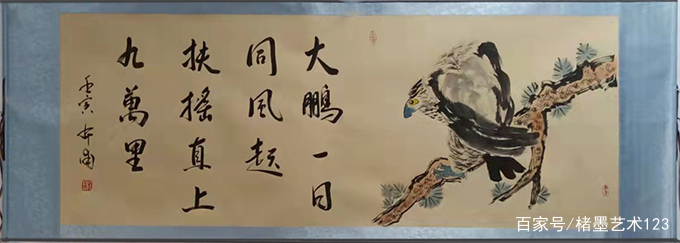 大鹏一日
同风起
扶摇直上
九萬里
壬寅
百家号/楮墨艺术123